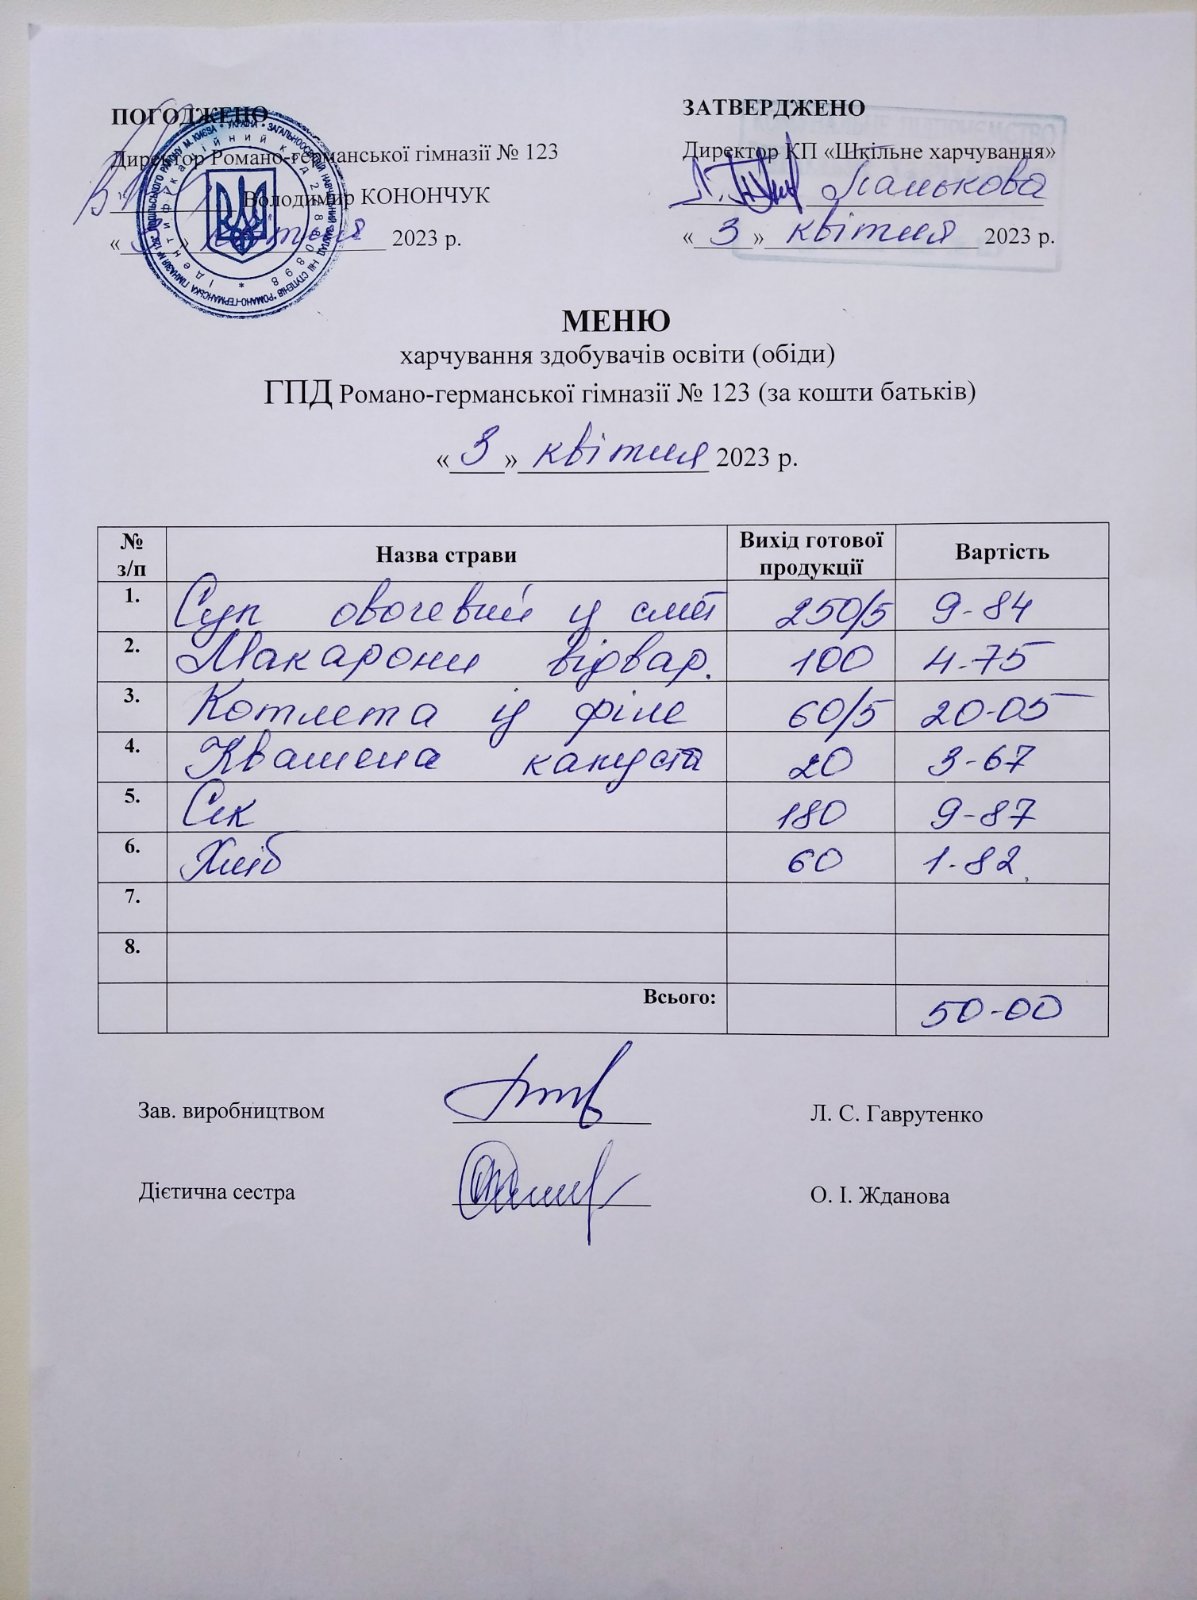 ПОГОДЖЕНО
Директор Романо-германської гімназії № 123
Володимир КОНОНЧУК
«3» квітня 2023 р.
ЗАТВЕРДЖЕНО
Директор КП «Шкільне харчування»
Панькова
«3» квітня 2023 р.
МЕНЮ
харчування здобувачів освіти (обіди)
ГПД Романо-германської гімназії № 123 (за кошти батьків)
«3» квітня 2023 р.
№ з/п Назва страви Вихід готової продукції Вартість
1. Суп овочевий із смет 250/5 9-84
2. Макарони відвар. 100 4-75
3. Котлета із філе 60/5 20-05
4. Квашена капуста 20 3-67
5. Сік 180 9-87
6. Хліб 60 1-82
7.
8.
Всього: 50-00
Зав. виробництвом Л. С. Гаврутенко
Дієтична сестра О. І. Жданова